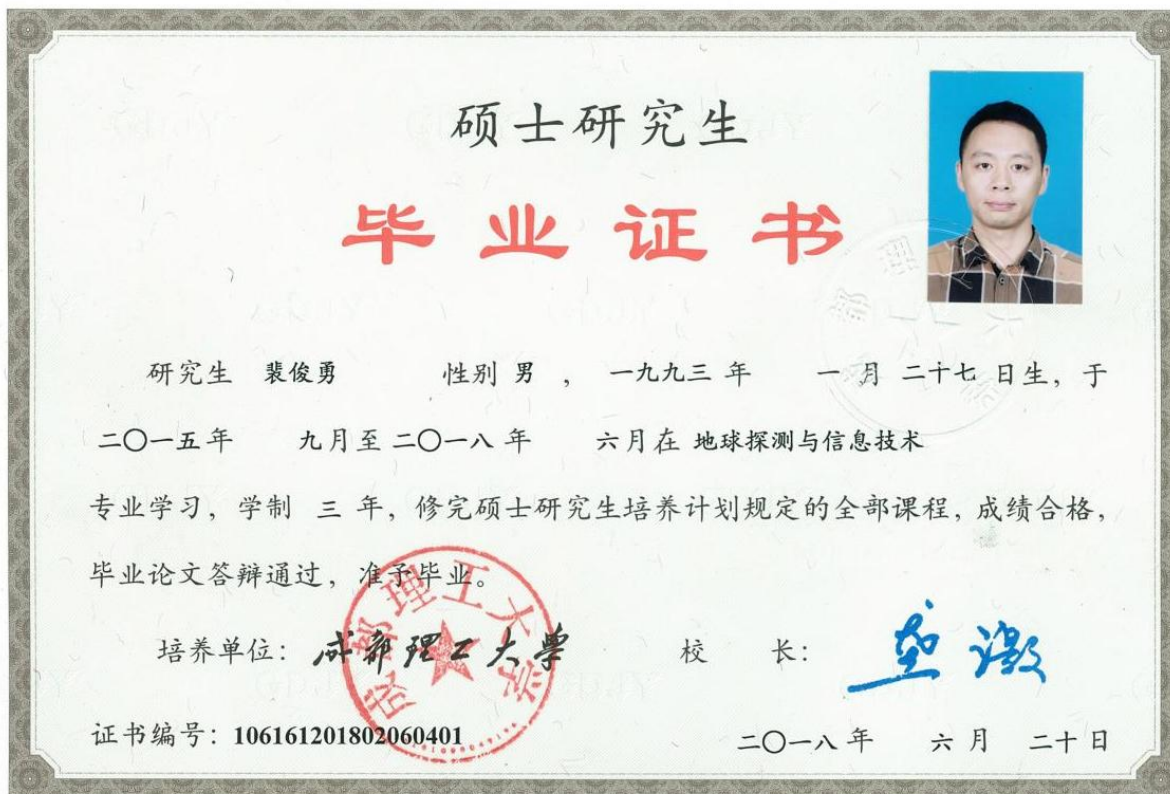 硕士研究生
毕业证书
研究生 裴俊勇 性别 男 , 一九九三 年 一 月 二十七 日生, 于
二〇一五 年 九月至 二〇一八 年 六月在 地球探测与信息技术
专业学习, 学制 三 年, 修完硕士研究生培养计划规定的全部课程, 成绩合格,
毕业论文答辩通过, 准予毕业。
培养单位: 成都理工大学 校 长:
成都理工大学
证书编号: 106161201802060401 二〇一八 年 六 月 二十 日